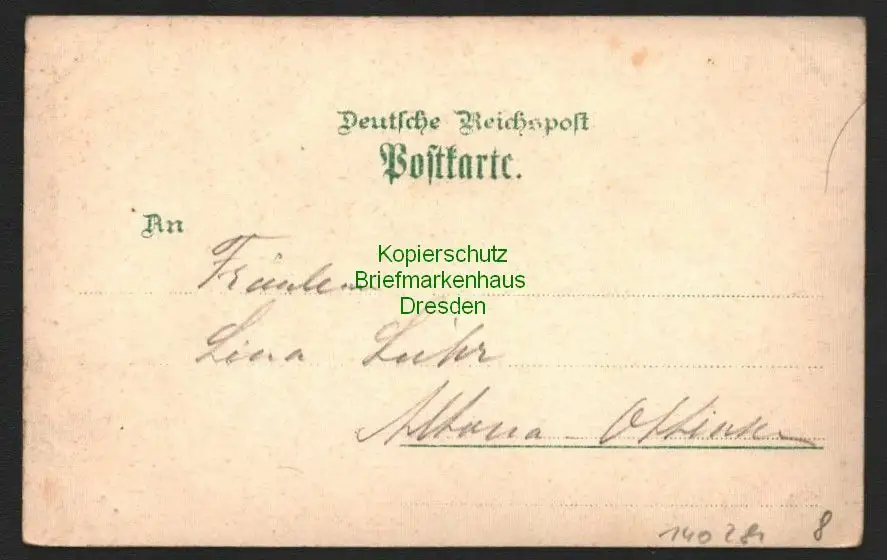 Deutsche Reichspost
Postkarte.
An
Kopierschutz
Briefmarkenhaus
Dresden
Fräulein
Lina Lühr
Altona
8